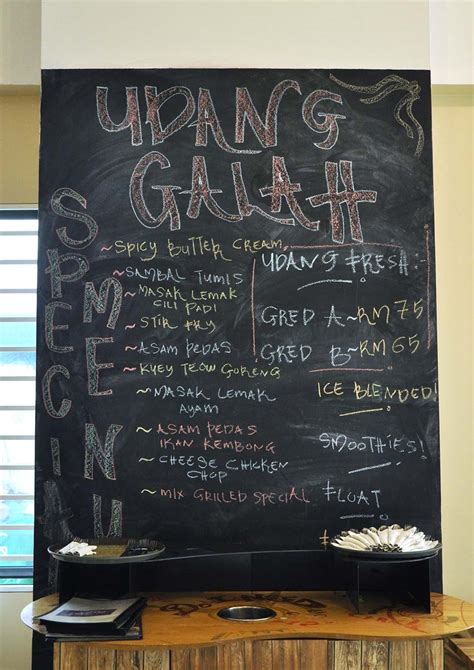 UDANG
GALAH
SPECIAL
MENU
~SPICY BUTTER CREAM
~SAMBAL TUMIS
~MASAK LEMAK
SILI PADI
~STIR FRY
~ASAM PEDAS
~KUEY TEOW GORENG
~MASAK LEMAK
AYAM
~ASAM PEDAS
IKAN KEMBONG
~CHEESE CHICKEN
CHOP
~MIX GRILLED SPECIAL
UDANG FRESH:-
GRED A~RM75
GRED B~RM65
ICE BLENDED!
SMOOTHIES!
FLOAT